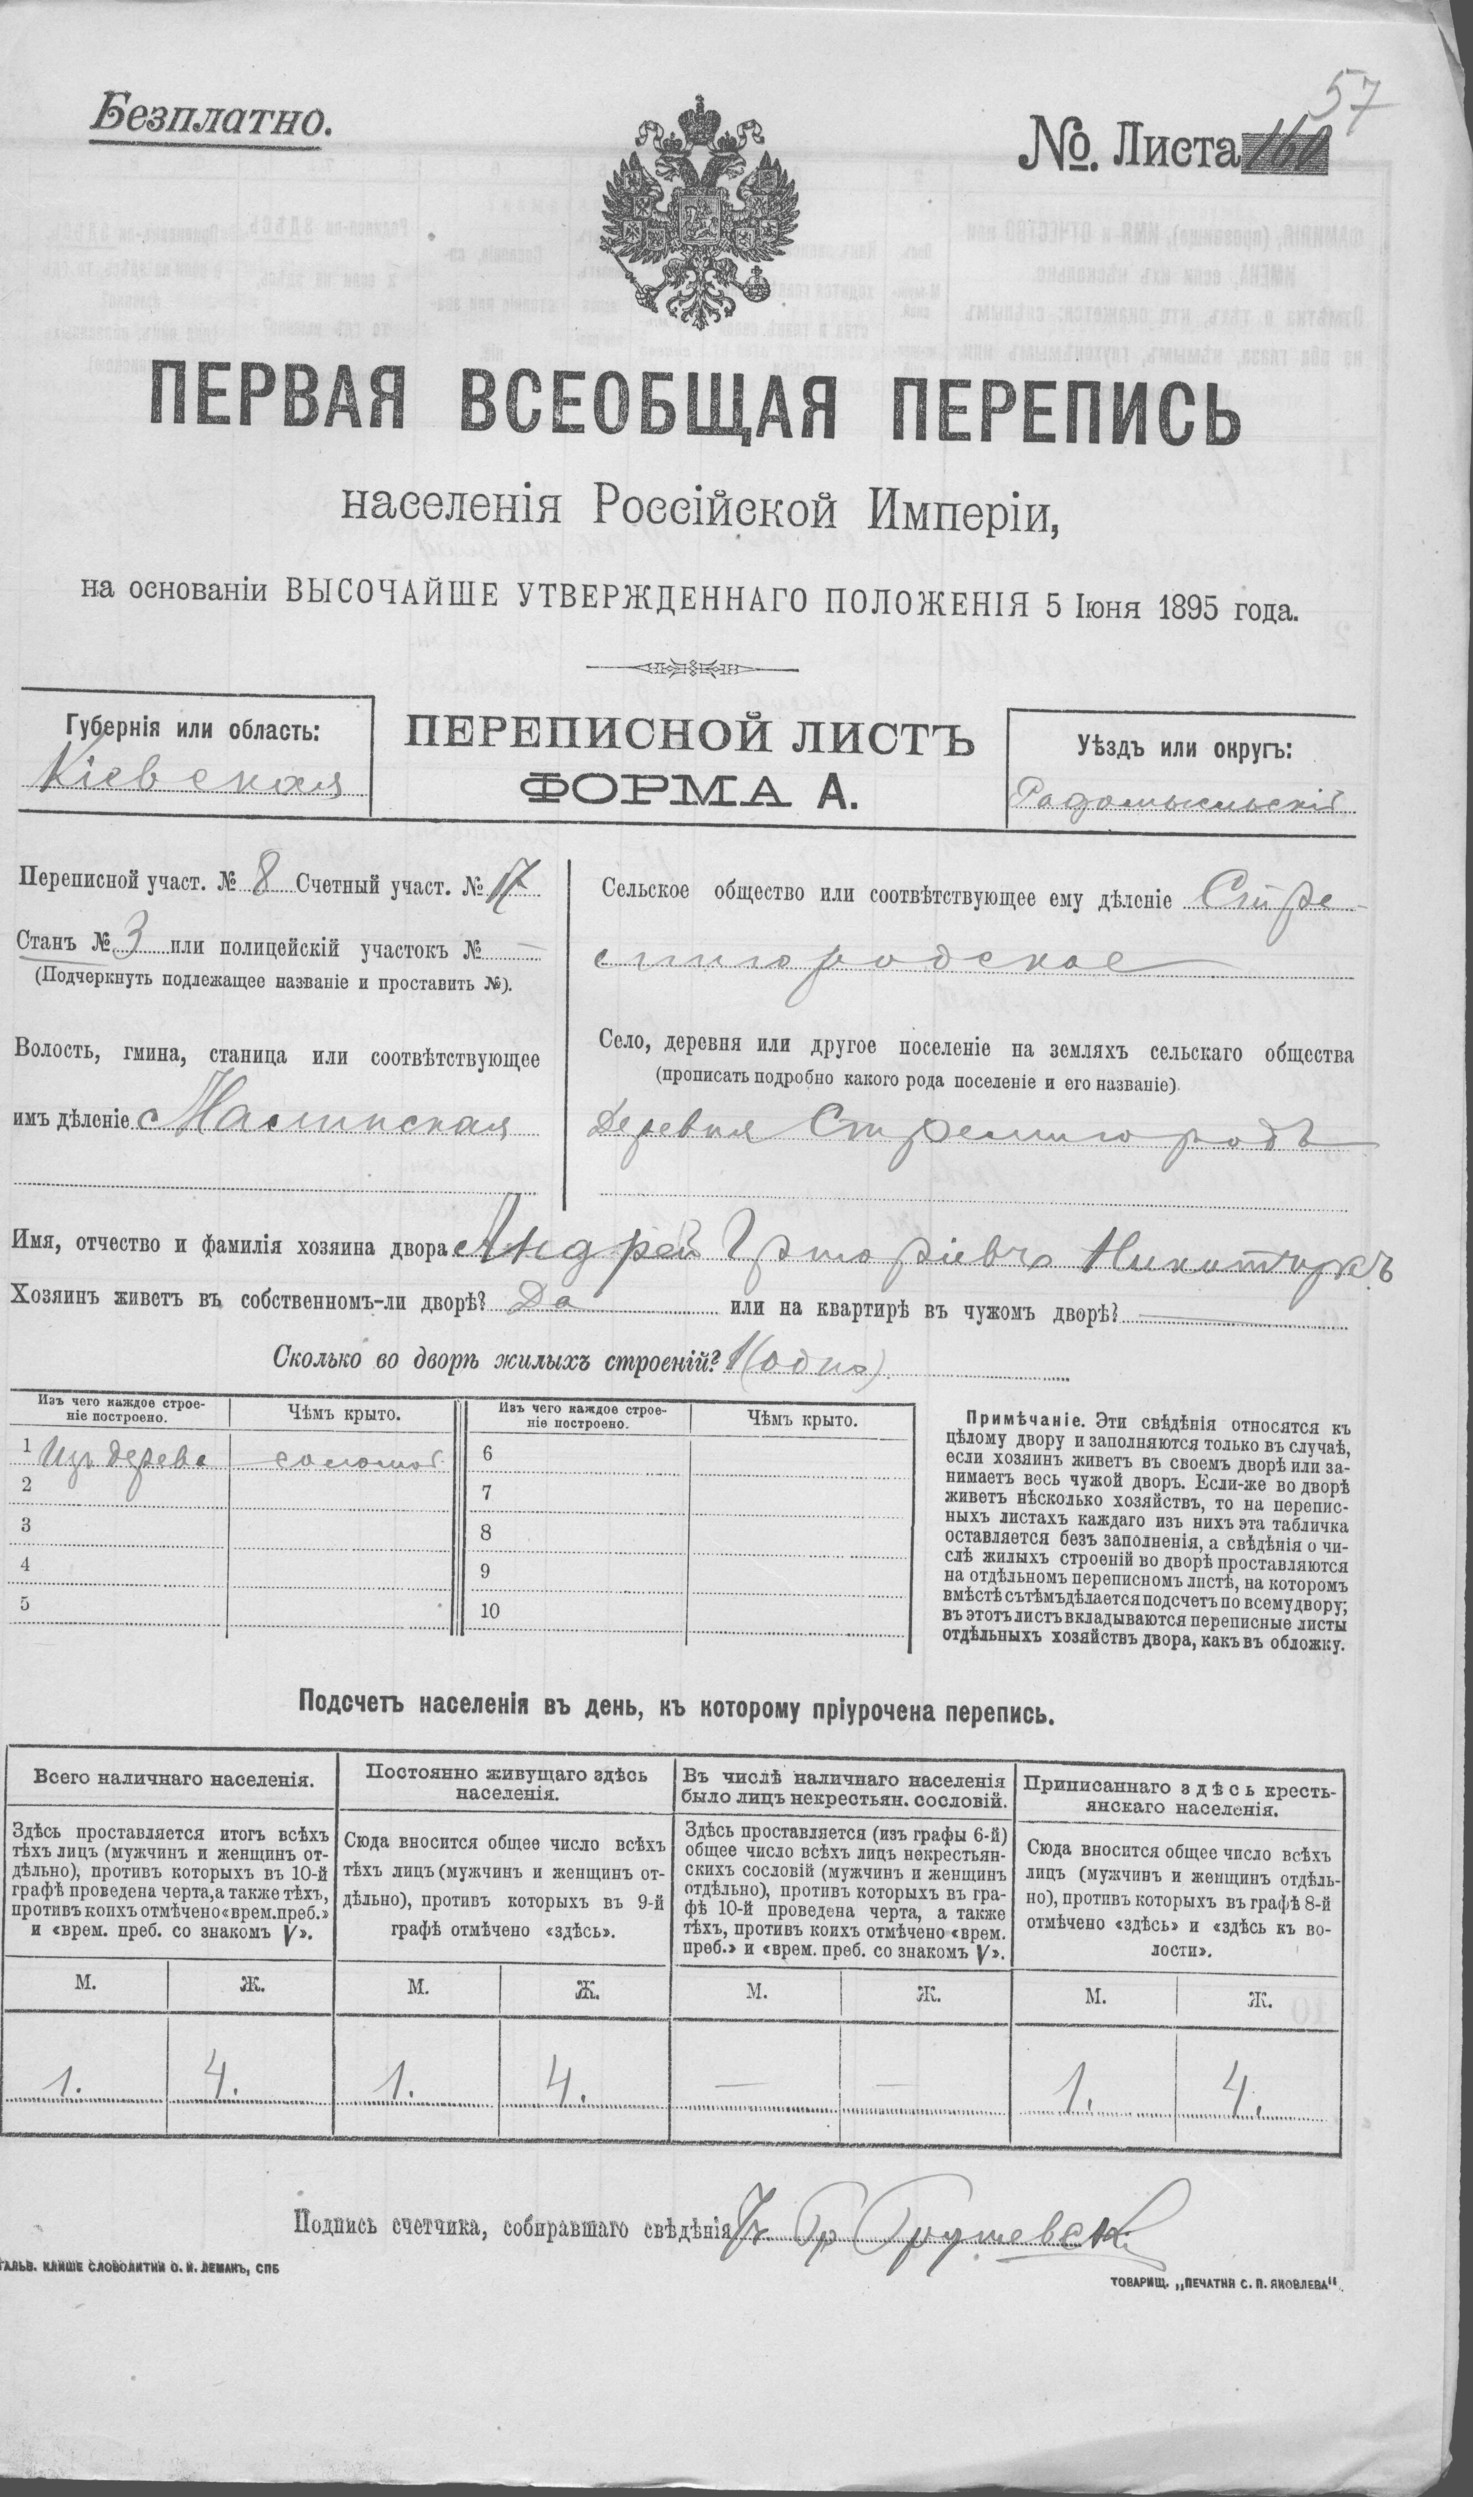 57
Безплатно.
№. Листа 160
ПЕРВАЯ ВСЕОБЩАЯ ПЕРЕПИСЬ
населенія Россійской Имперіи,
на основаніи ВЫСОЧАЙШЕ УТВЕРЖДЕННАГО ПОЛОЖЕНІЯ 5 Іюня 1895 года.
Губернія или область:
Кіевская
ПЕРЕПИСНОЙ ЛИСТЪ
ФОРМА А.
Уѣздъ или округъ:
Радомысльскій
Переписной участ. № 8 Счетный участ. № 17
Станъ № 3 или полицейскій участокъ № —
(Подчеркнуть подлежащее названіе и проставить №).
Волость, гмина, станица или соотвѣтствующее
имъ дѣленіе Малинская
Сельское общество или соотвѣтствующее ему дѣленіе Стре-
мигородское
Село, деревня или другое поселеніе на земляхъ сельскаго общества
(прописать подробно какого рода поселеніе и его названіе)
Деревня Стремигородъ
Имя, отчество и фамилія хозяина двора Андрей Григоріевъ
Хозяинъ живетъ въ собственномъ-ли дворѣ? Да или на квартирѣ въ чужомъ дворѣ? —
Сколько во дворѣ жилыхъ строеній? 1 (одно)
Изъ чего каждое строе-
ніе построено.
Чѣмъ крыто.
Изъ чего каждое строе-
ніе построено.
Чѣмъ крыто.
1 Изъ дерева соломой 6
2 7
3 8
4 9
5 10
Примѣчаніе. Эти свѣдѣнія относятся къ
цѣлому двору и заполняются только въ случаѣ,
если хозяинъ живетъ въ своемъ дворѣ или за-
нимаетъ весь чужой дворъ. Если-же во дворѣ
живетъ нѣсколько хозяйствъ, то на перепис-
ныхъ листахъ каждаго изъ нихъ эта табличка
оставляется безъ заполненія, а свѣдѣнія о чи-
слѣ жилыхъ строеній во дворѣ проставляются
на отдѣльномъ переписномъ листѣ, на которомъ
вмѣстѣ съ тѣмъ дѣлается подсчетъ по всему двору;
въ этотъ листъ вкладываются переписные листы
отдѣльныхъ хозяйствъ двора, какъ въ обложку.
Подсчетъ населенія въ день, къ которому пріурочена перепись.
Всего наличнаго населенія.
Здѣсь проставляется итогъ всѣхъ
тѣхъ лицъ (мужчинъ и женщинъ от-
дѣльно), противъ которыхъ въ 10-й
графѣ проведена черта, а также тѣхъ,
противъ коихъ отмѣчено «врем. преб.»
и «врем. преб. со знакомъ V».
Постоянно живущаго здѣсь
населенія.
Сюда вносится общее число всѣхъ
тѣхъ лицъ (мужчинъ и женщинъ от-
дѣльно), противъ которыхъ въ 9-й
графѣ отмѣчено «здѣсь».
Въ числѣ наличнаго населенія
было лицъ некрестьян. сословій.
Здѣсь проставляется (изъ графы 6-й)
общее число всѣхъ лицъ некрестьян-
скихъ сословій (мужчинъ и женщинъ
отдѣльно), противъ которыхъ въ гра-
фѣ 10-й проведена черта, а также
тѣхъ, противъ коихъ отмѣчено «врем.
преб.» и «врем. преб. со знакомъ V».
Приписаннаго здѣсь кресть-
янскаго населенія.
Сюда вносится общее число всѣхъ
лицъ (мужчинъ и женщинъ отдѣль-
но), противъ которыхъ въ графѣ 8-й
отмѣчено «здѣсь» и «здѣсь къ во-
лости».
М. Ж. М. Ж. М. Ж. М. Ж.
1. 4. 1. 4. — — 1. 4.
Подпись счетчика, собиравшаго свѣдѣнія Гр Грушевскі
ГАЛЬВ. КЛИШЕ СЛОВОЛИТНИ О. И. ЛЕМАНЪ, СПБ
ТОВАРИЩ. „ПЕЧАТНЯ С. П. ЯКОВЛЕВА".